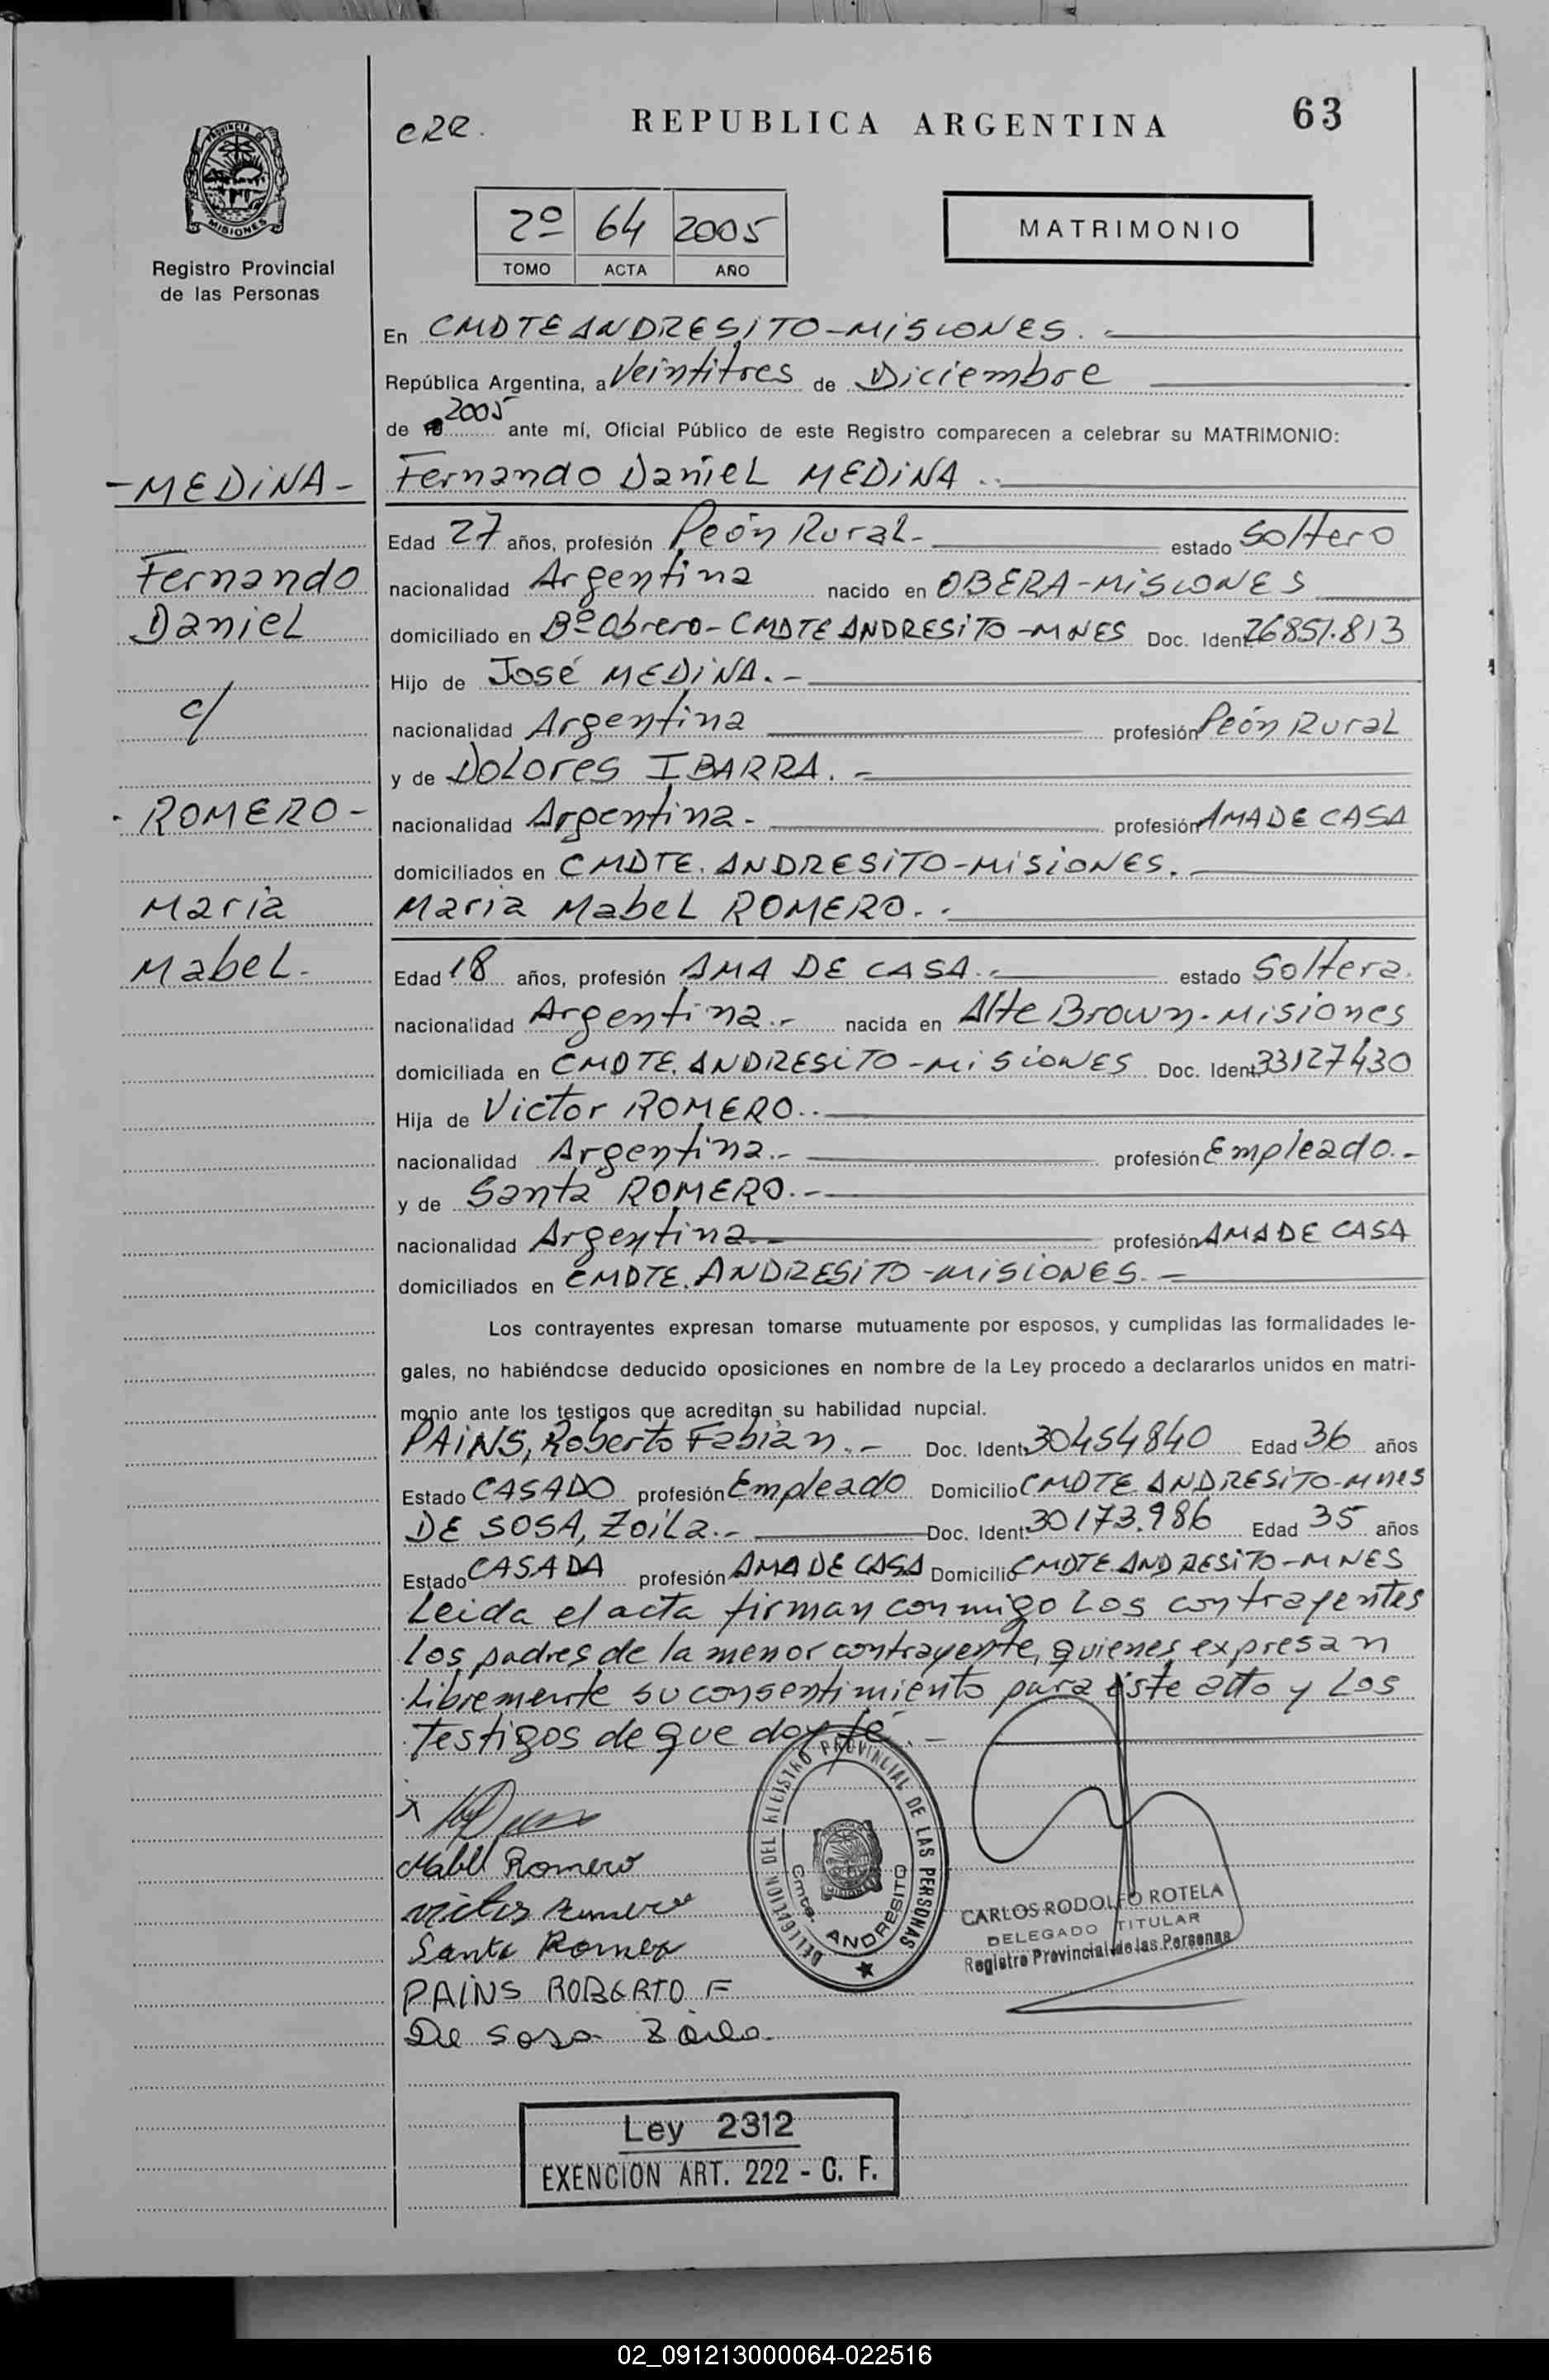 63
REPUBLICA ARGENTINA
PROVINCIA DE
MISIONES
Registro Provincial
de las Personas
2º 64 2005
TOMO ACTA AÑO
MATRIMONIO
En CMDTE ANDRESITO-MISIONES.
República Argentina, a Veintitres de Diciembre
de 2005 ante mí, Oficial Público de este Registro comparecen a celebrar su MATRIMONIO:
-MEDINA-
Fernando Daniel MEDINA.
Edad 27 años, profesión Peón Rural- estado Soltero
Fernando
nacionalidad Argentina nacido en OBERA-MISIONES
Daniel
domiciliado en Bº Obrero-CMDTE ANDRESITO-MNES Doc. Ident. 26851.813
Hijo de José MEDINA.-
c/
nacionalidad Argentina profesión Peón Rural
y de Dolores IBARRA.-
-ROMERO-
nacionalidad Argentina- profesión AMA DE CASA
domiciliados en CMDTE. ANDRESITO-MISIONES.
Maria
Maria Mabel ROMERO.
Mabel-
Edad 18 años, profesión AMA DE CASA.- estado Soltera.
nacionalidad Argentina.- nacida en Alte Brown-Misiones
domiciliada en CMDTE. ANDRESITO-MISIONES Doc. Ident. 33127430
Hija de Victor ROMERO.
nacionalidad Argentina.- profesión Empleado.-
y de Santa ROMERO.-
nacionalidad Argentina profesión AMA DE CASA
domiciliados en CMDTE. ANDRESITO-MISIONES.-
Los contrayentes expresan tomarse mutuamente por esposos, y cumplidas las formalidades le-
gales, no habiéndose deducido oposiciones en nombre de la Ley procedo a declararlos unidos en matri-
monio ante los testigos que acreditan su habilidad nupcial.
PAINS, Roberto Fabián.- Doc. Ident. 30454840 Edad 36 años
Estado CASADO profesión Empleado Domicilio CMDTE ANDRESITO-Mnes
DE SOSA, Zoila.- Doc. Ident. 30173.986 Edad 35 años
Estado CASADA profesión AMA DE CASA Domicilio CMDTE.ANDRESITO-MNES
Leida el acta firman conmigo Los contrayentes
los padres de la menor contrayente, quienes expresan
Libremente su consentimiento para éste acto y Los
testigos de que doy fé.-
Mabel Romero
Victor Romero
Santa Romero
PAINS ROBERTO F
De Sosa Zoila.
DELEGACION DEL REGISTRO PROVINCIAL DE LAS PERSONAS
Cmte. ANDRESITO
CARLOS RODOLFO ROTELA
DELEGADO TITULAR
Registro Provincial de las Personas
Ley 2312
EXENCION ART. 222 - C. F.
02_091213000064-022516